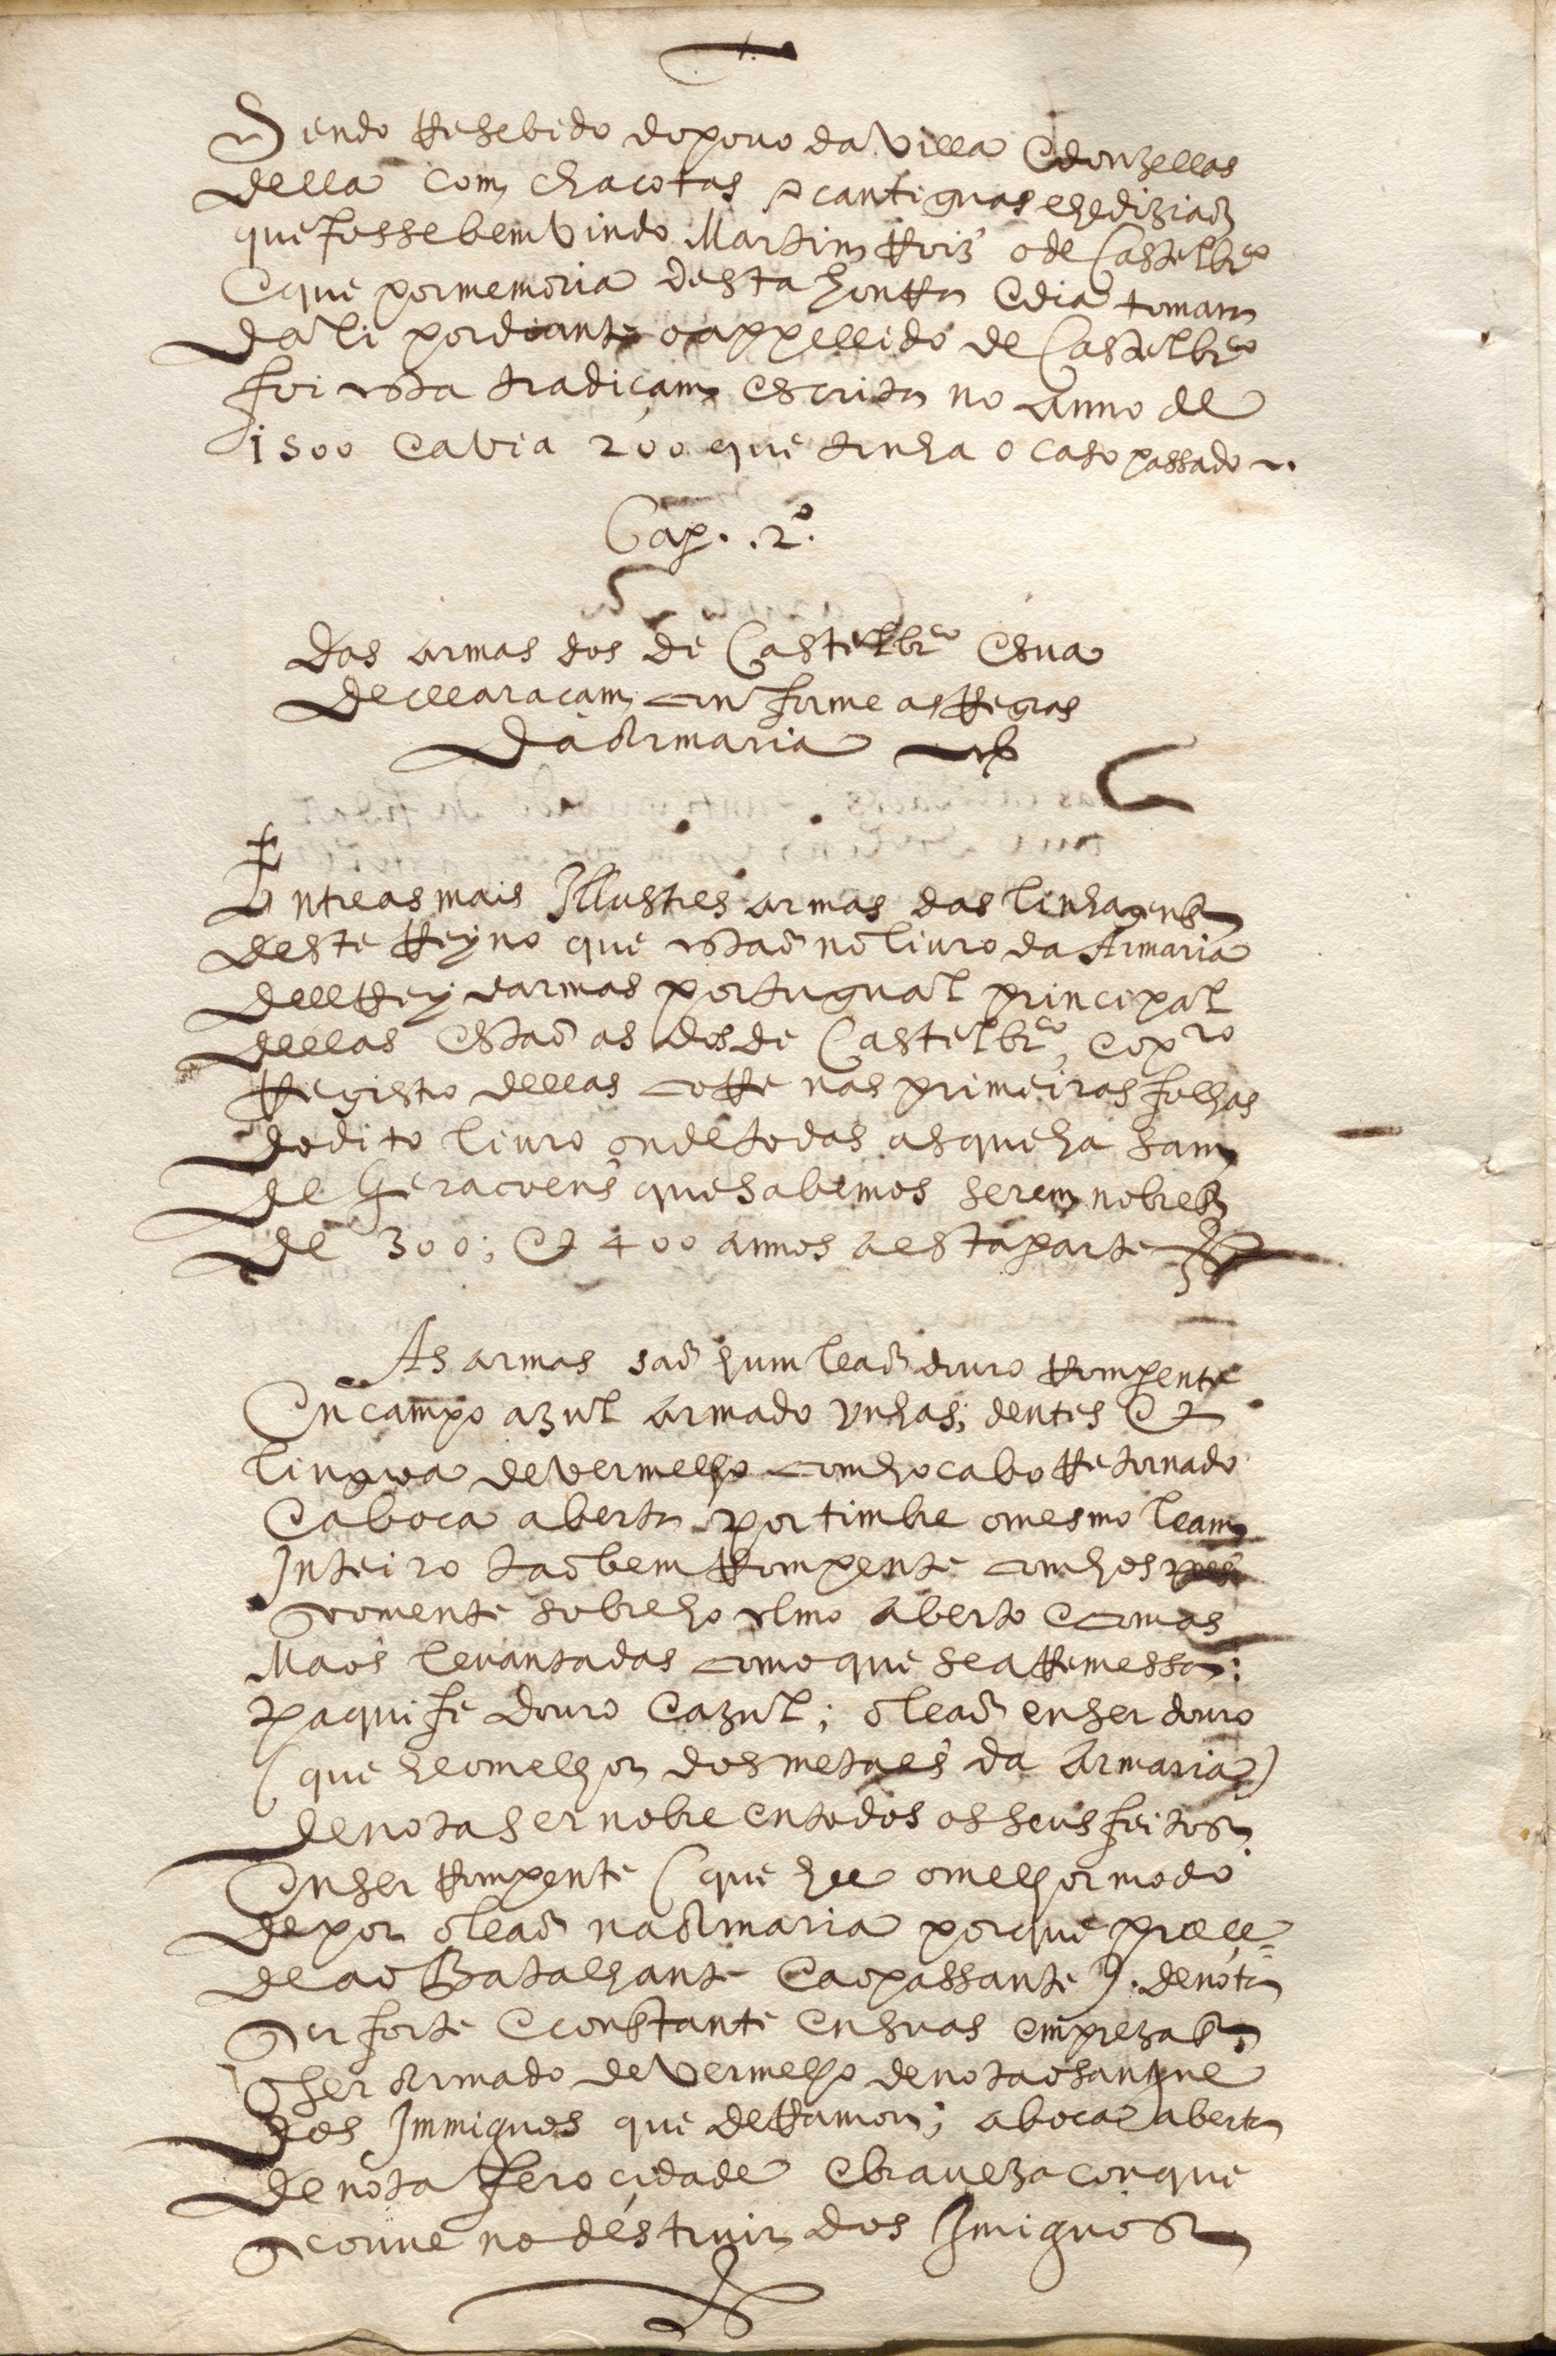 Sendo Resebido do povo da Villa e donzellas
della com chacotas e cantiguas e lhe diziaõ
que fosse bem Vindo Martim Roiz o de Castelbrco
e que por memoria desta honRa e dia tomara
dali por diante o appellido de Castelbrco
foi esta tradiçam escrita no anno de
1500 e avia 200 que tinha o caso passado
Cap. .2º.
Das armas dos de Castelbrco e sua
decllaraçam conforme as Regras
da Armaria
Entre as mais Illustres armas das linhagens
deste Reyno que estaõ no livro da Armaria
dell Rey darmas portugual principal
dellas estaõ as dos de Castelbrco, e o pro
Registo dellas coRe nas primeiras folhas
do dito livro onde todas as que ha sam
de Geracoens que sabemos serem nobres
de 300; & 400 annos a esta parte
As armas saõ hum leaõ douro Rompente
en campo azul armado vnhas; dentes &
lingoa de vermelho com ho cabo Retornado
e a boca aberta por timbre o mesmo leam
Inteiro taõbem Rompente com hos pes
somente sobre ho elmo aberto e com as
Maos levantadas como que se aRemessa:
paquife douro e azul; o leaõ en ser douro
(que he o melhor dos metaes da Armaria)
denota ser nobre en todos os seus feitos
En ser Rompente (que hee o melhor modo
de por o leaõ na Armaria porque preçe=
de ao Batalhante e ao passante). denota
ser forte e constante en suas emprezas;
o ser Armado de Vermelho denota o sangue
dos Immiguos que deRamou; a boca aberta
denota feroçidade e braveza con que
se ouve no destruir dos Imiguos